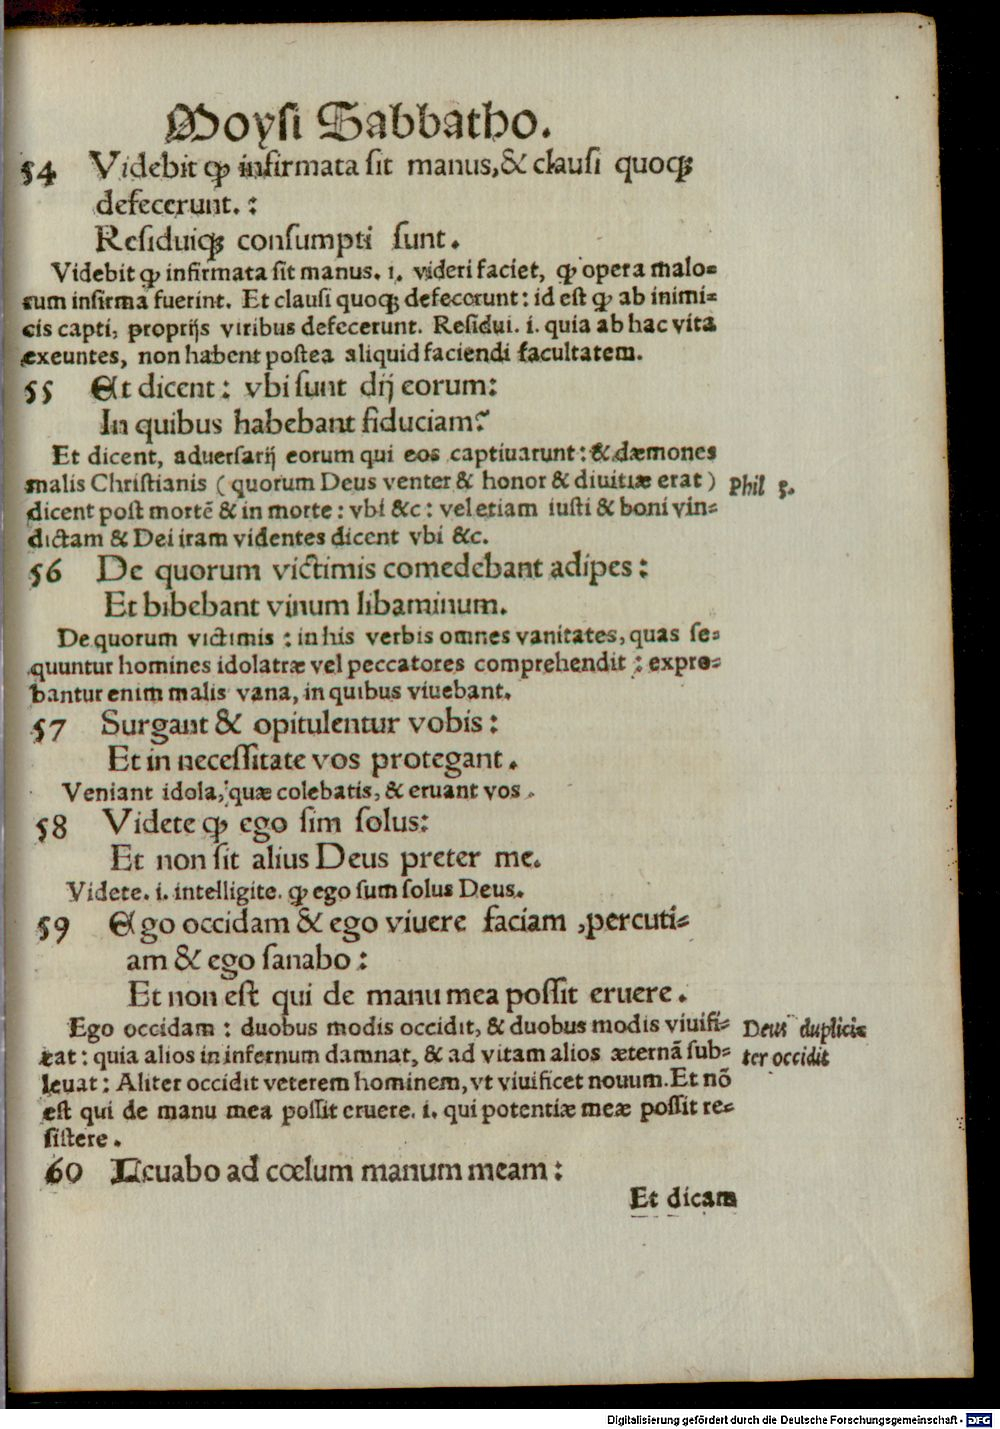 Moysi Sabbatho.
54 Videbit ꝙ infirmata sit manus, & clausi quoqꝫ
defecerunt. :
Residuiqꝫ consumpti sunt.
Videbit ꝙ infirmata sit manus. i. videri faciet, ꝙ opera malo=
rum infirma fuerint. Et clausi quoqꝫ defecerunt : id est ꝙ ab inimi=
cis capti, proprijs viribus defecerunt. Residui. i. quia ab hac vita
exeuntes, non habent postea aliquid faciendi facultatem.
55 Et dicent : vbi sunt dij eorum:
In quibus habebant fiduciam?
Et dicent, aduersarij eorum qui eos captiuarunt : & dæmones
malis Christianis ( quorum Deus venter & honor & diuitiæ erat )
Phil 3.
dicent post mortē & in morte : vbi &c : vel etiam iusti & boni vin=
dictam & Dei iram videntes dicent vbi &c.
56 De quorum victimis comedebant adipes :
Et bibebant vinum libaminum.
De quorum victimis : in his verbis omnes vanitates, quas se=
quuntur homines idolatræ vel peccatores comprehendit : expro=
bantur enim malis vana, in quibus viuebant.
57 Surgant & opitulentur vobis :
Et in necessitate vos protegant.
Veniant idola, quæ colebatis, & eruant vos.
58 Videte ꝙ ego sim solus:
Et non sit alius Deus preter me.
Videte. i. intelligite. ꝙ ego sum solus Deus.
59 Ego occidam & ego viuere faciam , percuti=
am & ego sanabo :
Et non est qui de manu mea possit eruere.
Ego occidam : duobus modis occidit, & duobus modis viuifi=
Deus duplici=
cat : quia alios in infernum damnat, & ad vitam alios æternā sub=
ter occidit
leuat : Aliter occidit veterem hominem, vt viuificet nouum. Et nō
est qui de manu mea possit eruere. i. qui potentiæ meæ possit re=
sistere.
60 Leuabo ad cœlum manum meam :
Et dicam
Digitalisierung gefördert durch die Deutsche Forschungsgemeinschaft - DFG